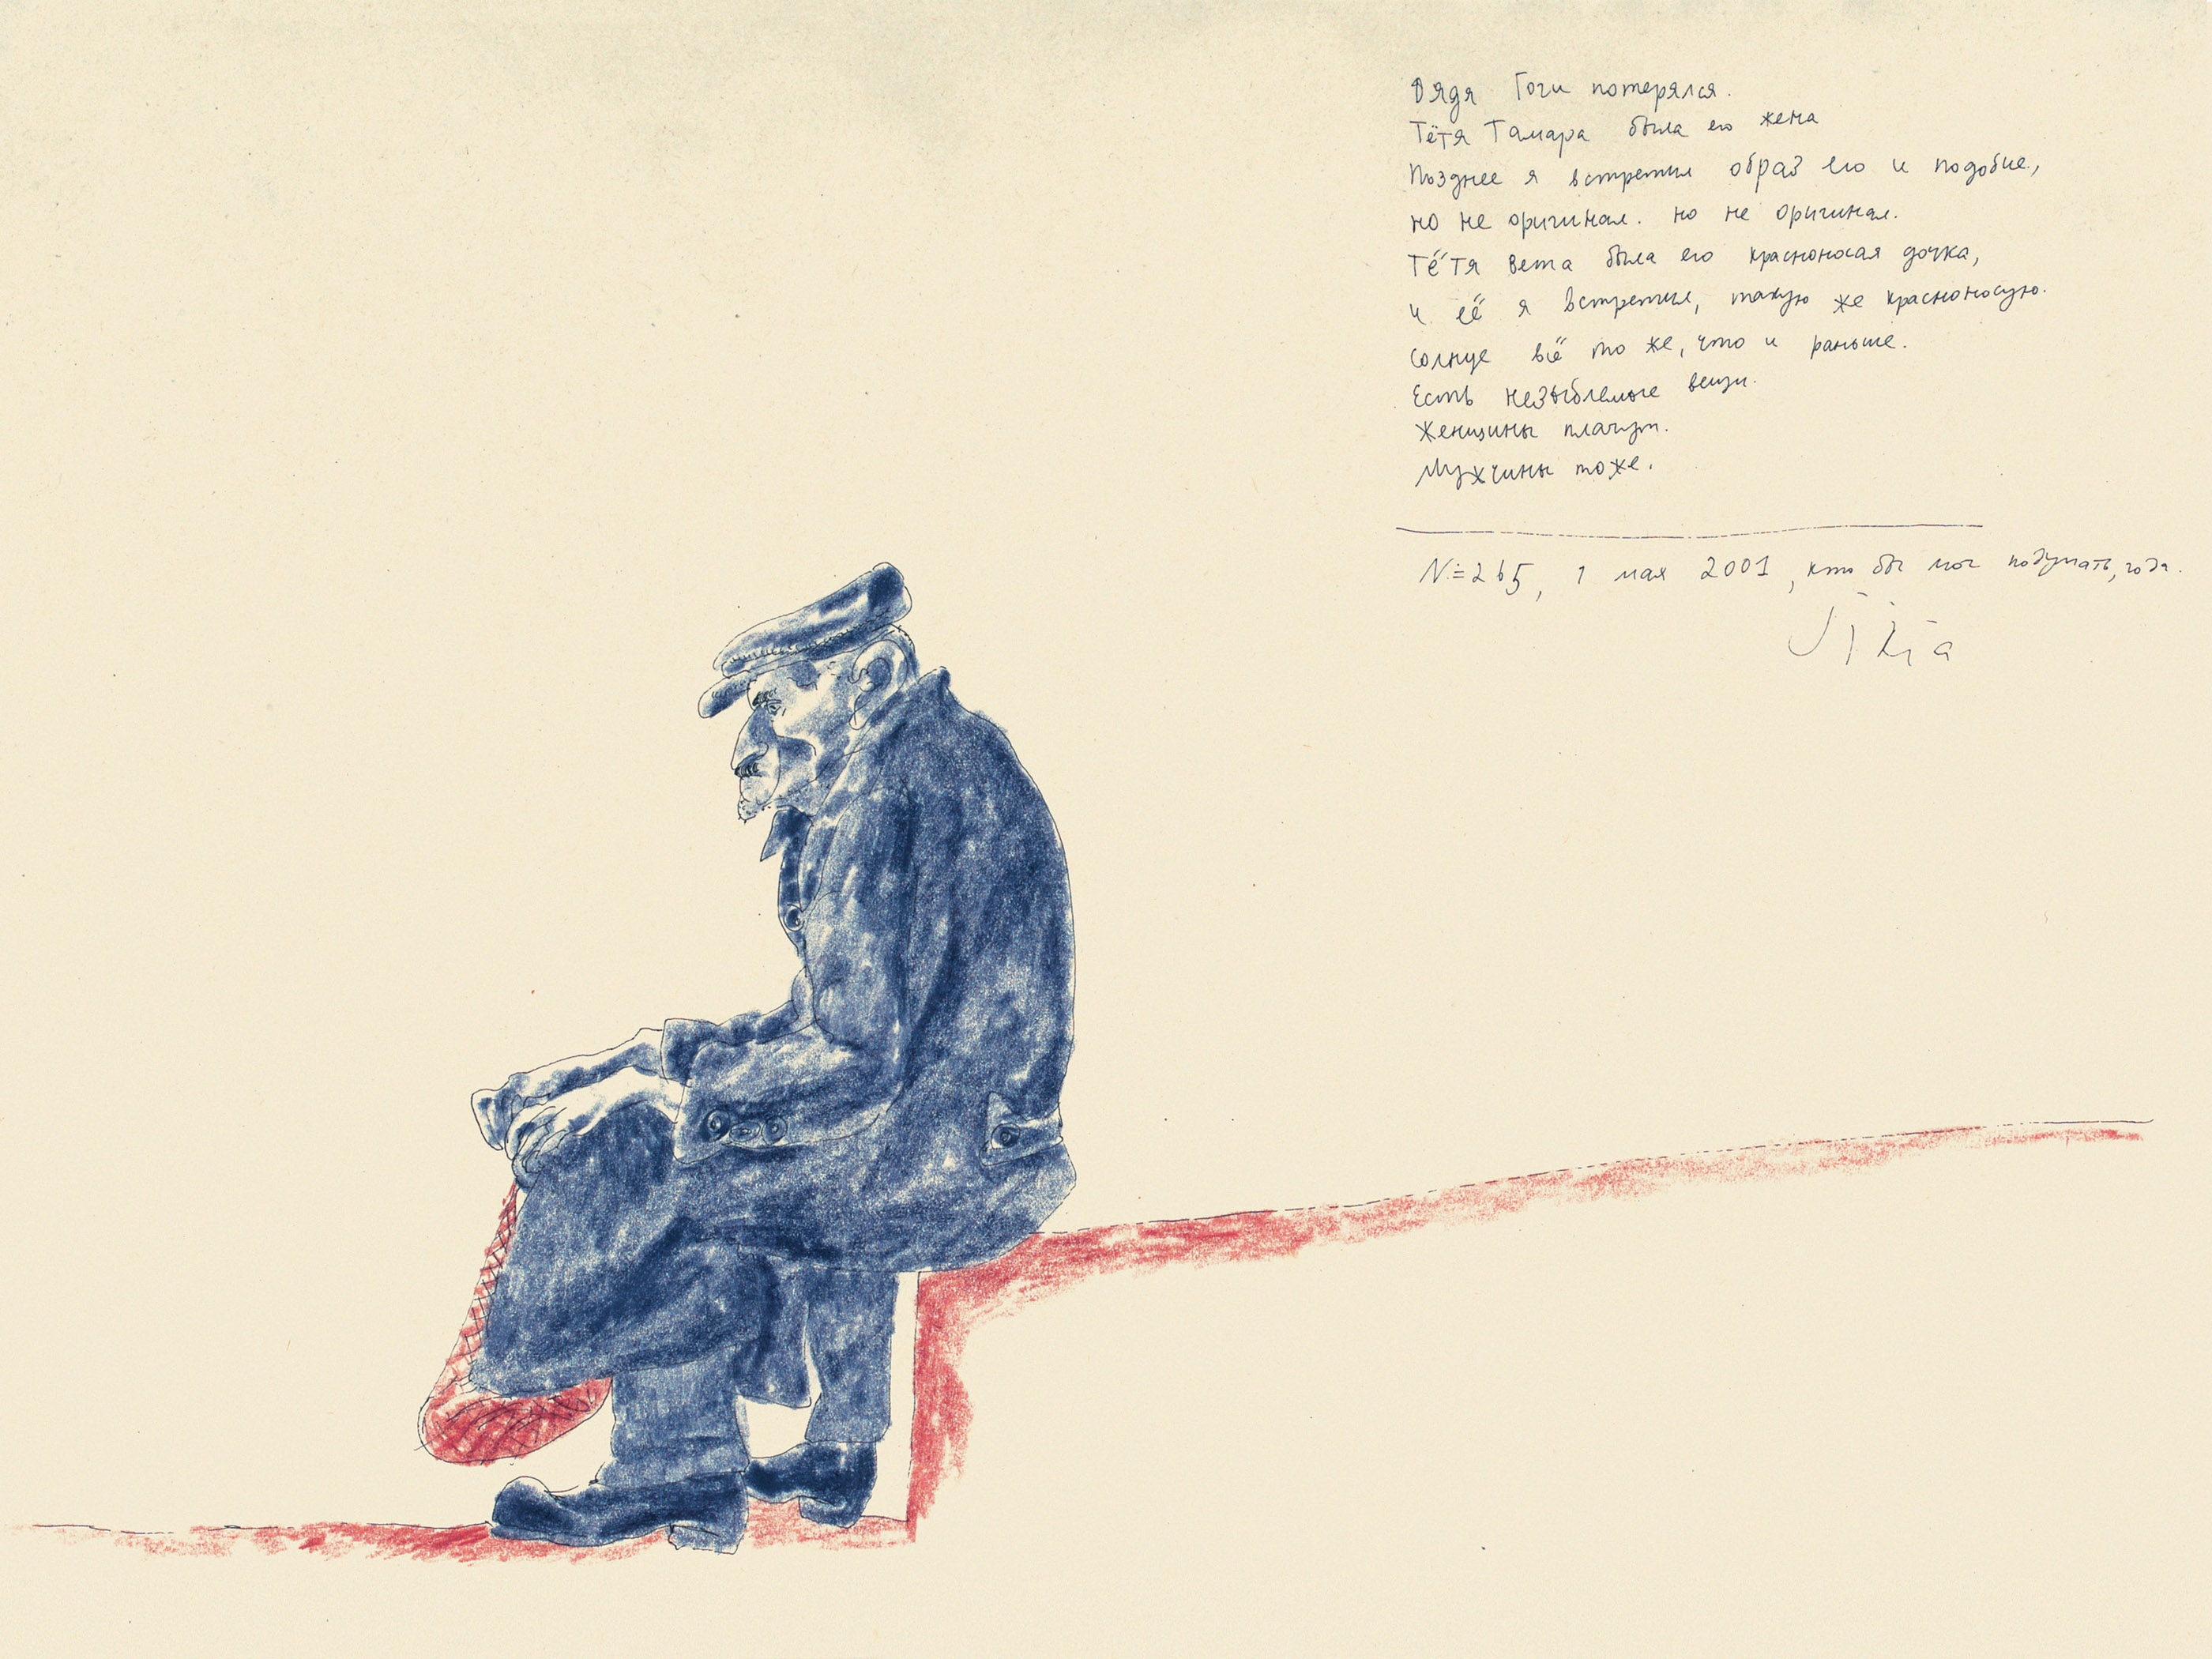 Дядя Гоги потерялся.
Тётя Тамара была его жена
Позднее я встретил образ его и подобие,
но не оригинал. но не оригинал.
Тётя Вета была его красноносая дочка,
и её я встретил, такую же красноносую.
Солнце всё то же, что и раньше.
Есть незыблемые вещи.
Женщины плачут.
Мужчины тоже.
N=265, 1 мая 2001, кто бы мог подумать, года.